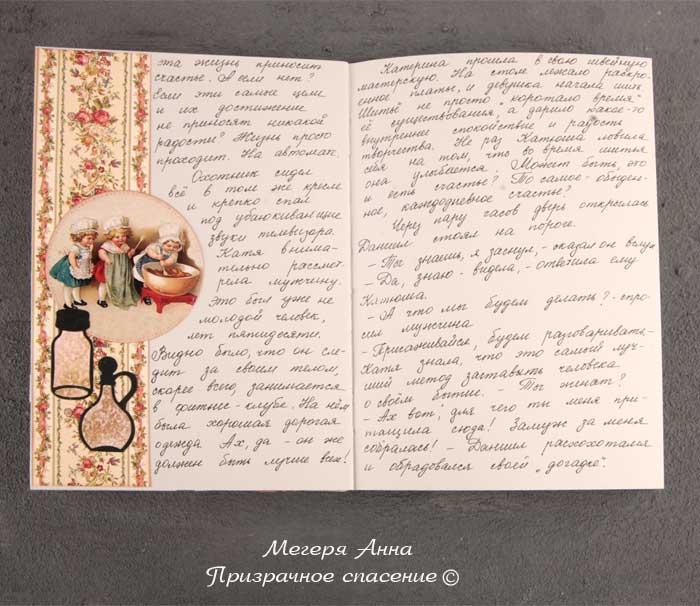 эта жизнь приносит
счастье. А если нет?
Если эти самые цели
и их достижение
не приносят никакой
радости? Жизнь просто
проходит. На автомат.
Охотник сидел
всё в том же кресле
и крепко спал
под убаюкивающие
звуки телевизора.
Катя внима-
тельно рассмот-
рела мужчину.
Это был уже не
молодой человек,
лет пятидесяти.
Видно было, что он сле-
дит за своим телом,
скорее всего, занимается
в фитнес-клубе. На нём
была хорошая дорогая
одежда Ах, да - он же
должен быть лучше всех!
Катерина прошла в свою швейную
мастерскую. На столе лежало раскро-
енное платье, и девушка начала шить
Шитьё не просто „коротало время"
её существования, а дарило какое-то
внутреннее спокойствие и радость
творчества. Не раз Катюша ловила
себя на том, что во время шитья
она улыбается. Может быть, это
и есть счастье? То самое - обыден-
ное, каждодневное счастье?
Через пару часов дверь открылась
Даниил стоял на пороге.
- Ты знаешь, я заснул, - сказал он
- Да, знаю - видела, - ответила ему
Катюша.
- А что мы будем делать? - спро-
сил мужчина
- Присаживайся, будем разговаривать -
Катя знала, что это самый луч-
ший метод заставить человека
о своём бытие. - Ты женат?
- Ах вот, для чего ты меня при-
тащила сюда! Замуж за меня
собралась! - Даниил расхохотался
и обрадовался своей „догадке".
Мегеря Анна
Призрачное спасение ©